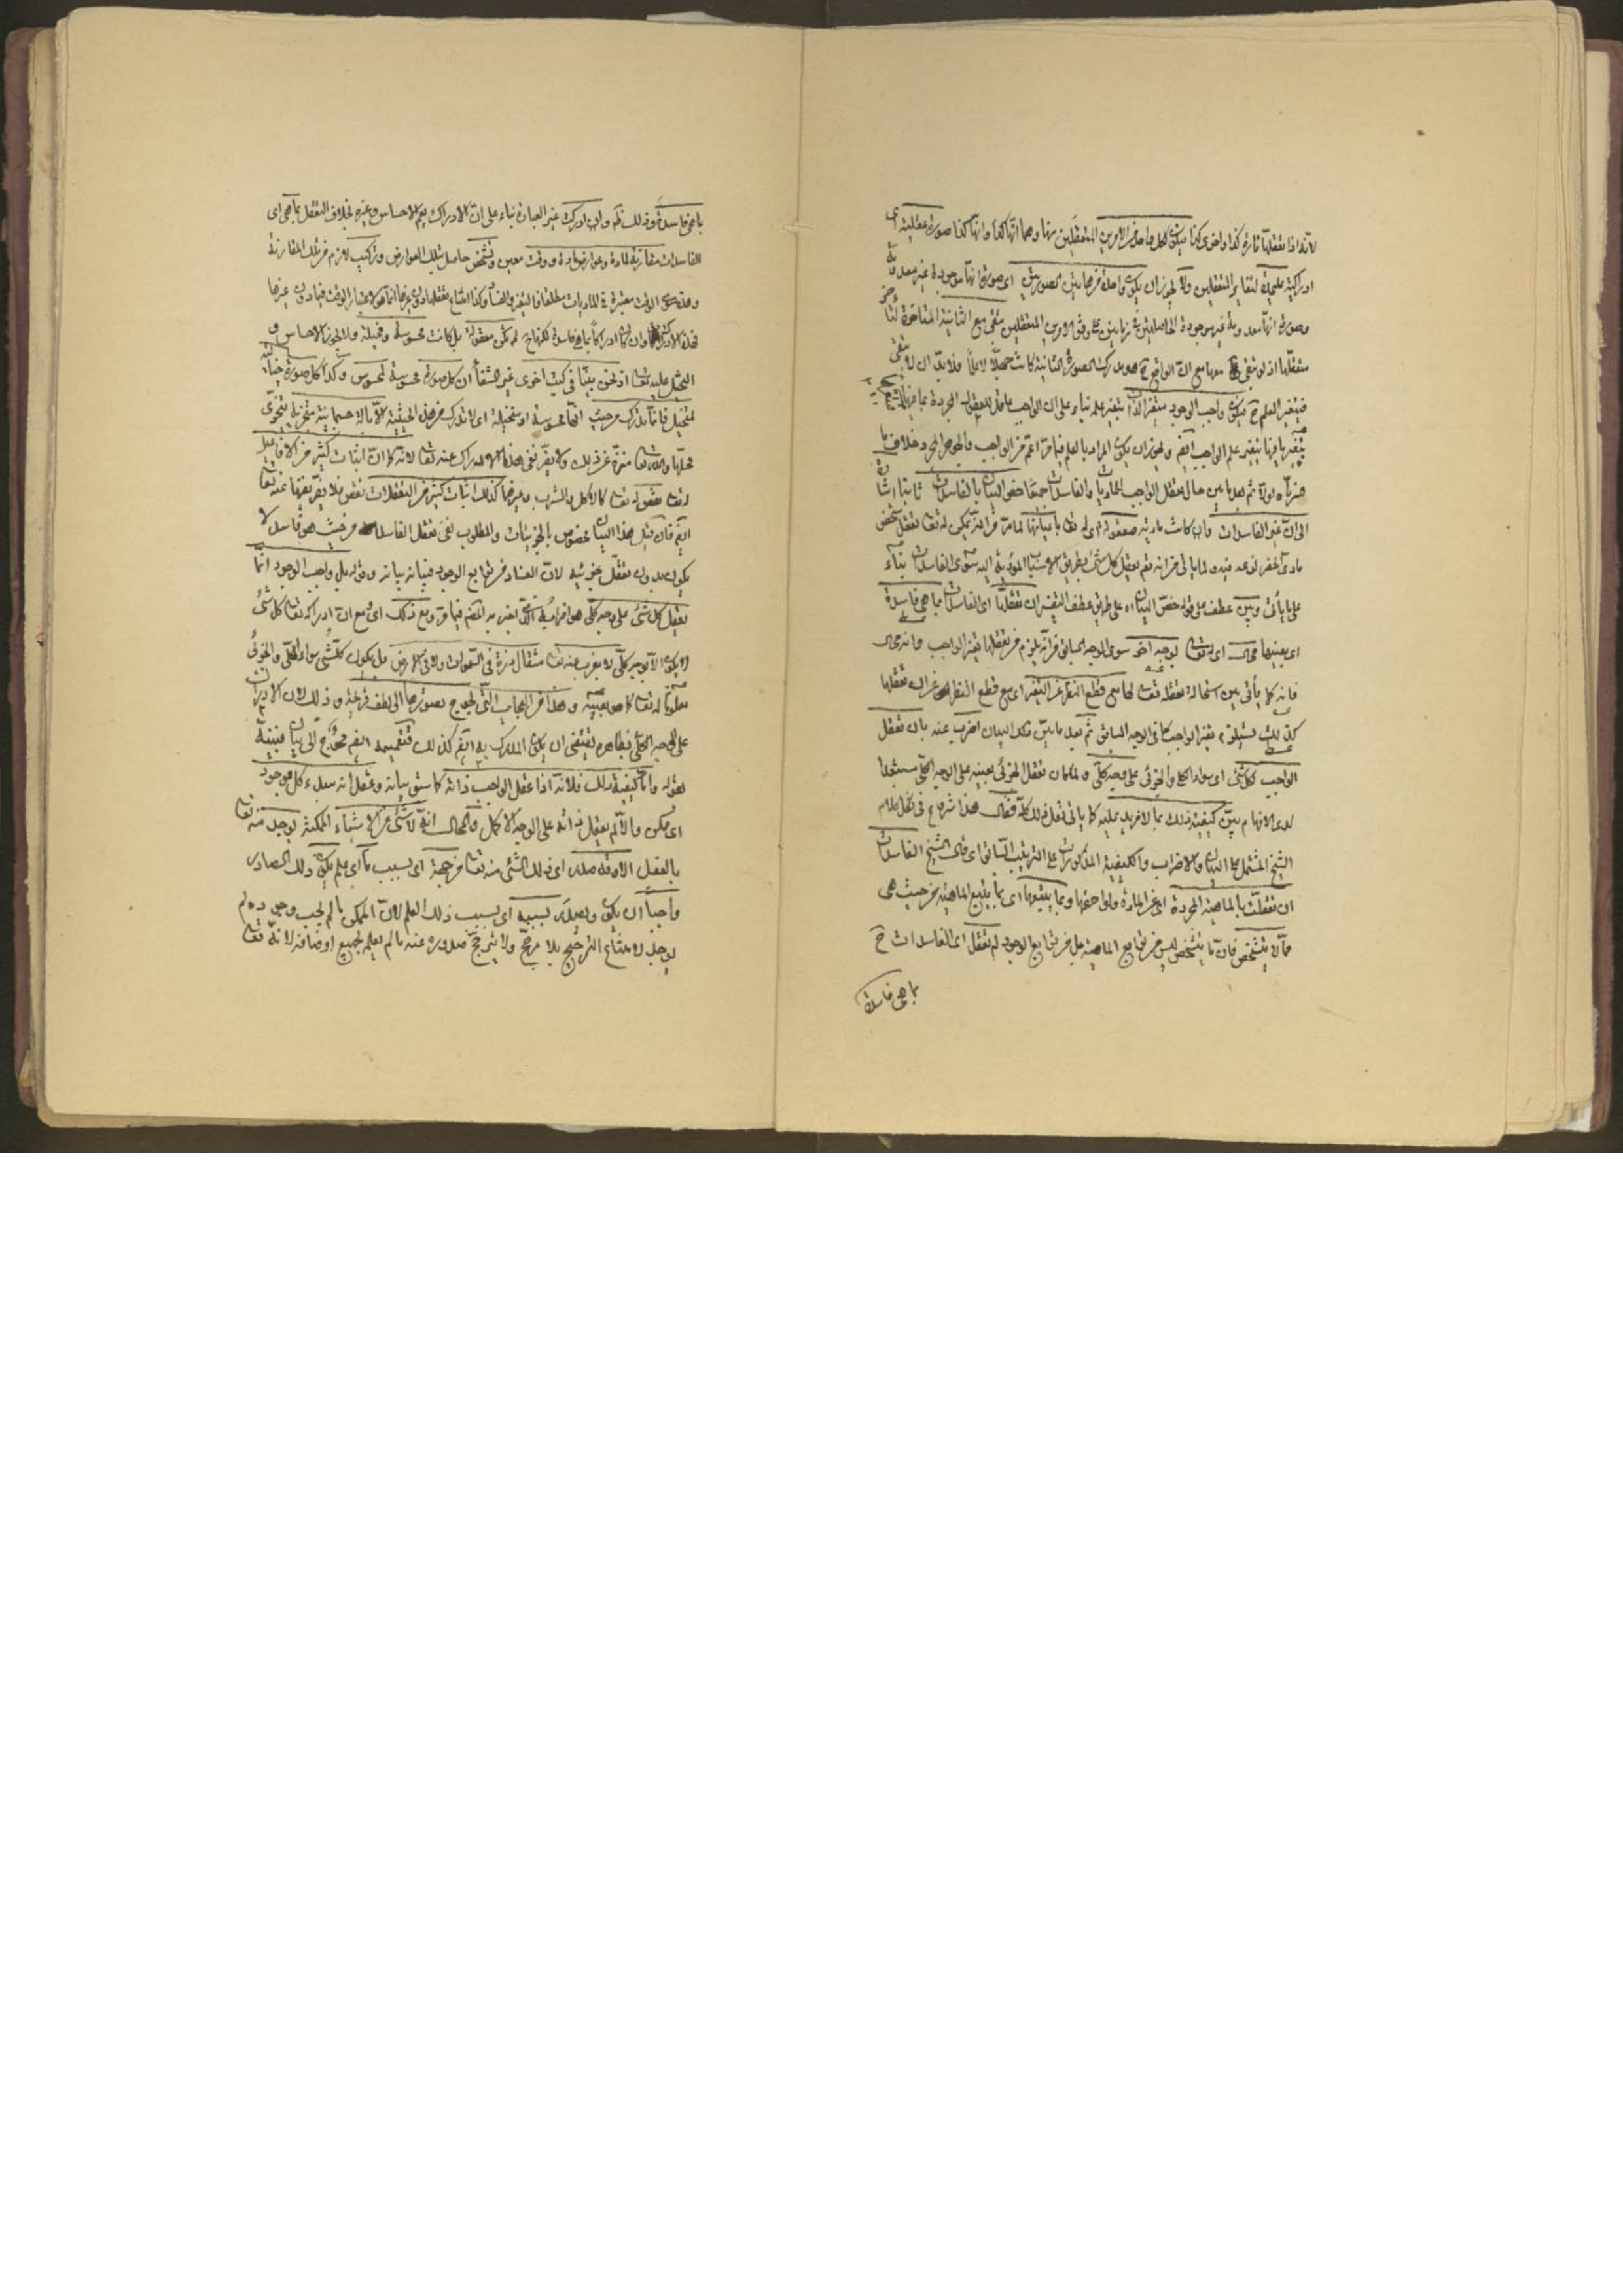 لانه اذا تعقلها تارة كذا واخرى كذا فيكون لكل واحد من الامرين المتعقلين منها وهما انها كذا وانها كذا صورة عقلية اى
ادراكية علىحدة لتغاير المتعقلين ولا يجوز ان يكون واحدة من هاتين الصورتين اى صورة انها موجودة غير معدومة
وصورة انها معدومة غير موجودة الحاصلتين في زمانين على وفق الامرين المتعقلين تبقى مع الثانية المتاخرة
متعقلها اذ لو بقى معها مع ان الواقع ح هو مدرك الصورة الثانية كانت جهلا لا علما فلا بد ان لا يبقى
فيتغير العلم ح فيكون واجب الوجود متغير الذات بتغير علمه بناء على ان الواجب عاقل للمعقولات المجردة
بتغيرها يتغير علم الواجب ايضا ويجوز ان يكون المراد بالعلم فيما مر اعم من الواجب والجوهر المجرد خلاف ما
اولا ثم بعد ما بين حال تعقل الواجب للماديات والفاسدات جميعا خص البيان بالفاسدات ثانيا اشارة
الى ان غير الفاسدات وان كانت مادية معقولة له تعالى باعيانها لما مر من انه يمكن له تعالى تعقل شخص
مادى نوعه فيه ولما ياتى من انه تعالى يعقل كل شئ بطريق الاسباب المؤدية اليه سوى الفاسدات بناء
على ما ياتى وبين عطف على قوله خص البيان اه على طريق عطف التفسير ان تعقلها اى الفاسدات بما هى فاسدة
اى بعينها محال اى له تعالى بوجه آخر سوى الوجه السابق من انه يلزم من تعقلها تغير الواجب وانه محال
فانه كما ياتى بين استحالة تعقله تعالى لها مع قطع النظر عن التغير اى مع قطع النظر عن ان تعقلها
كذلك يستلزم تغير الواجب كما فى الوجه السابق ثم بعد ما بين ذلك البيان اضرب عنه بان تعقل
الواجب لكل شئ اى سواء الكلى والجزئى على وجه كلى ولما كان تعقل الجزئى بعينه على الوجه الكلى مستبعدا
لدى الافهام بين كيفية ذلك بما لا مزيد عليه كما ياتى نقل ذلك كله فقال هذا شروع فى نقل كلام
الشيخ المشتمل على البيان والاضراب والكيفية المذكورات على الترتيب السابق اى قال الشيخ الفاسدات
ان تعقلت بالماهية المجردة اى عن المادة ولواحقها وبما يتبعها اى بما يتبع الماهية من حيث هى
مما لا يتشخص فان ما يتشخص ليس من توابع الماهية بل من توابع الوجود لم تعقل اى الفاسدات ح
بما هى فاسدة
بما هى فاسدة وذلك ظ وان ادركت غير العبارة بناء على ان الادراك يعم الاحساس وغيره بخلاف التعقل بما هى اى
الفاسدات مقارنة لمادة وعوارض مادة ووقت معين وتشخص حاصل بتلك العوارض وتركيب لازم من تلك المقارنة
وهذه سوى الوقت معتبرة فى الماديات مطلقا
فهذه لم تكن معقولة بل كانت محسوسة ومخيلة ولا يجوز الاحساس و
التخيل عليه تعالى اذ نحن بينا فى كتب اخرى غير الشفاء ان كل صورة محسوسة لمحسوس وكذا كل صورة خيالية
لمتخيل فانما تدرك من حيث انها محسوسة او متخيلة اى لا تدرك من هذه الحيثية الا بآلة جسمانية متجزية بتجزى
محلها والله تعالى منزه عن ذلك ولا يضر نفى هذا الادراك عنه تعالى لانه كما ان اثبات كثير من الافاعيل
له تعالى نقص له تعالى كالاكل والشرب وغيرهما كذلك اثبات كثير من التعقلات نقص فلا يضر نفيها عنه تعالى
ايضا فان قيل هذا البيان مخصوص بالجزئيات والمطلوب نفى تعقل الفاسدات من حيث هو فاسد لا
يكون بدون تعقل جزئيه لان الفساد من توابع الوجود فبيانه بيانه وقوله بل واجب الوجود انما
يعقل كل شئ على وجه كلى هو اضرابه الذى اخبر به المص فيما مر ومع ذلك اى ومع ان ادراكه تعالى كل شئ
لا يكون الا بوجه كلى لا يعزب عنه تعالى مثقال ذرة فى السموات ولا فى الارض بل يكون كل شئ سواء الكلى والجزئى
معلوما له تعالى كما هو بعينه وهذا من العجائب التى يحوج تصورها الى لطف قريحة وذلك لان الادراك
على الوجه الكلى بظاهره يقتضى ان يكون المدرك به ايضا كذلك فتعميمه ايضا محوج الى بيان فبينه
بقوله واما كيفية ذلك فلانه اذا عقل الواجب ذاته كما سبق بيانه وعقل انه مبدء كل موجود
اى ممكن والا لم يعقل ذاته على الوجه الاكمل والحال انه لا شئ من الاشياء الممكنة يوجد منه تعالى
بالفعل الا وقد صدر اى ذلك الشئ منه تعالى من جهة اى بسبب ما اى علم يكون ذلك الصادر
واجبا ان يكون ويصدر بسببه اى بسبب ذلك العلم لان الممكن ما لم يجب وجوده لم
يوجد لامتناع الترجيح بلا مرجح ولا يترجح صدوره عنه ما لم يعلم بجميع اوصافه لانه تعالى